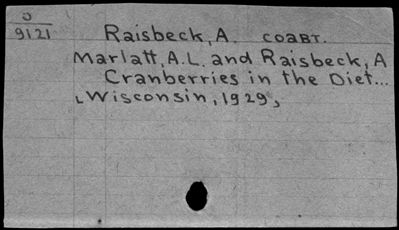 J
9121
Raisbeck, A. соавт.
Marlatt, A.L. and Raisbeck, A
Cranberries in the Diet...
[Wisconsin, 1929]